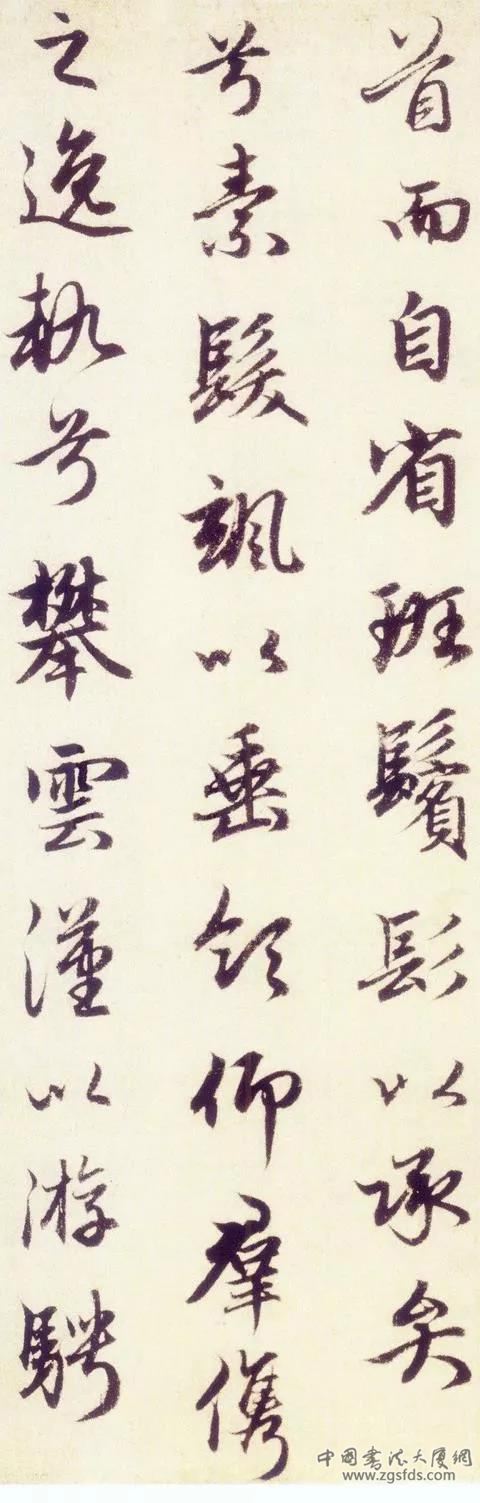 首而自省班鬢髟以承矣
兮素髮颯以垂領仰羣儁
之逸執兮攀雲漢以游騁
中国书法大厦網
www.zgsfds.com